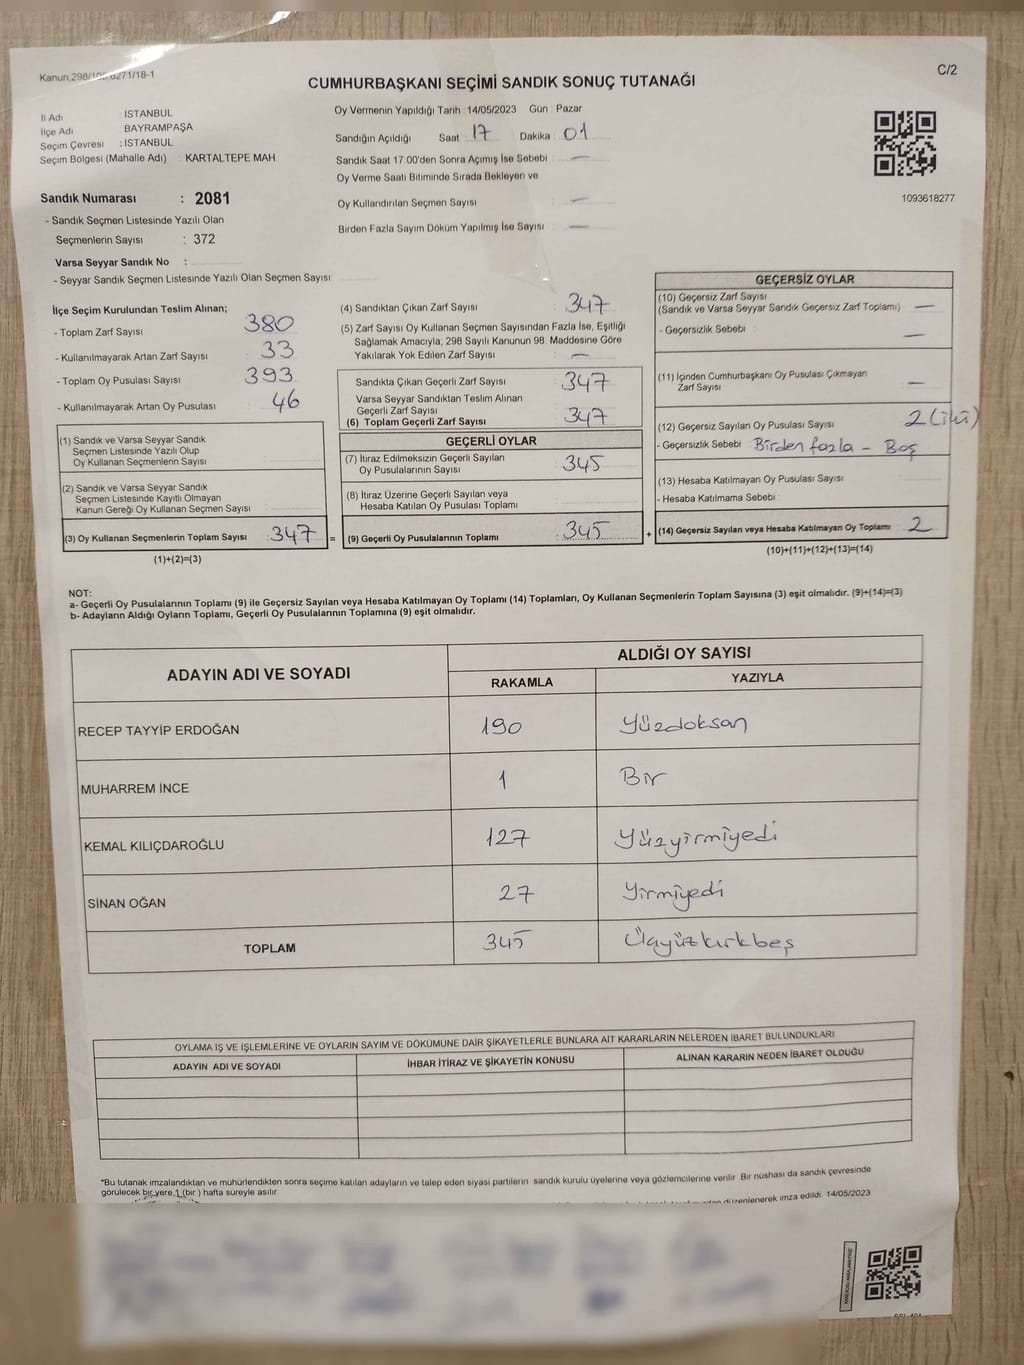 Kanun,298/106,6271/18-1
C/2
CUMHURBAŞKANI SEÇİMİ SANDIK SONUÇ TUTANAĞI
İl Adı İSTANBUL
İlçe Adı BAYRAMPAŞA
Seçim Çevresi : İSTANBUL
Seçim Bölgesi (Mahalle Adı) : KARTALTEPE MAH.
Oy Vermenin Yapıldığı Tarih : 14/05/2023 Gün : Pazar
Sandığın Açıldığı Saat : 17 Dakika : 01
Sandık Saat 17:00'den Sonra Açımış İse Sebebi : —
Oy Verme Saati Bitiminde Sırada Bekleyen ve
Oy Kullandırılan Seçmen Sayısı : —
Birden Fazla Sayım Döküm Yapılmış İse Sayısı : —
1093618277
Sandık Numarası : 2081
- Sandık Seçmen Listesinde Yazılı Olan
Seçmenlerin Sayısı : 372
Varsa Seyyar Sandık No :
- Seyyar Sandık Seçmen Listesinde Yazılı Olan Seçmen Sayısı:
İlçe Seçim Kurulundan Teslim Alınan;
- Toplam Zarf Sayısı : 380
- Kullanılmayarak Artan Zarf Sayısı : 33
- Toplam Oy Pusulası Sayısı : 393
- Kullanılmayarak Artan Oy Pusulası : 46
(1) Sandık ve Varsa Seyyar Sandık
Seçmen Listesinde Yazılı Olup
Oy Kullanan Seçmenlerin Sayısı :
(2) Sandık ve Varsa Seyyar Sandık
Seçmen Listesinde Kayıtlı Olmayan
Kanun Gereği Oy Kullanan Seçmen Sayısı :
(3) Oy Kullanan Seçmenlerin Toplam Sayısı : 347 =
(1)+(2)=(3)
(4) Sandıktan Çıkan Zarf Sayısı : 347
(5) Zarf Sayısı Oy Kullanan Seçmen Sayısından Fazla İse, Eşitliği
Sağlamak Amacıyla; 298 Sayılı Kanunun 98. Maddesine Göre
Yakılarak Yok Edilen Zarf Sayısı : —
Sandıkta Çıkan Geçerli Zarf Sayısı : 347
Varsa Seyyar Sandıktan Teslim Alınan
Geçerli Zarf Sayısı :
(6) Toplam Geçerli Zarf Sayısı : 347
GEÇERLİ OYLAR
(7) İtiraz Edilmeksizin Geçerli Sayılan
Oy Pusulalarının Sayısı : 345
(8) İtiraz Üzerine Geçerli Sayılan veya
Hesaba Katılan Oy Pusulası Toplamı :
(9) Geçerli Oy Pusulalarının Toplamı : 345 +
GEÇERSİZ OYLAR
(10) Geçersiz Zarf Sayısı
(Sandık ve Varsa Seyyar Sandık Geçersiz Zarf Toplamı) : —
- Geçersizlik Sebebi : —
(11) İçinden Cumhurbaşkanı Oy Pusulası Çıkmayan
Zarf Sayısı : —
(12) Geçersiz Sayılan Oy Pusulası Sayısı : 2 (iki)
- Geçersizlik Sebebi : Birden fazla - Boş
(13) Hesaba Katılmayan Oy Pusulası Sayısı :
- Hesaba Katılmama Sebebi :
(14) Geçersiz Sayılan veya Hesaba Katılmayan Oy Toplamı : 2
(10)+(11)+(12)+(13)=(14)
NOT:
a- Geçerli Oy Pusulalarının Toplamı (9) ile Geçersiz Sayılan veya Hesaba Katılmayan Oy Toplamı (14) Toplamları, Oy Kullanan Seçmenlerin Toplam Sayısına (3) eşit olmalıdır. (9)+(14)=(3)
b- Adayların Aldığı Oyların Toplamı, Geçerli Oy Pusulalarının Toplamına (9) eşit olmalıdır.
ADAYIN ADI VE SOYADI ALDIĞI OY SAYISI
RAKAMLA YAZIYLA
RECEP TAYYİP ERDOĞAN 190 Yüzdoksan
MUHARREM İNCE 1 Bir
KEMAL KILIÇDAROĞLU 127 Yüzyirmiyedi
SİNAN OĞAN 27 Yirmiyedi
TOPLAM 345 Üçyüzkırkbeş
OYLAMA İŞ VE İŞLEMLERİNE VE OYLARIN SAYIM VE DÖKÜMÜNE DAİR ŞİKAYETLERLE BUNLARA AİT KARARLARIN NELERDEN İBARET BULUNDUKLARI
ADAYIN ADI VE SOYADI İHBAR İTİRAZ VE ŞİKAYETİN KONUSU ALINAN KARARIN NEDEN İBARET OLDUĞU
*Bu tutanak imzalandıktan ve mühürlendikten sonra seçime katılan adayların ve talep eden siyasi partilerin sandık kurulu üyelerine veya gözlemcilerine verilir. Bir nüshası da sandık çevresinde
görülecek bir yere 1 (bir) hafta süreyle asılır.
düzenlenerek imza edildi. 14/05/2023